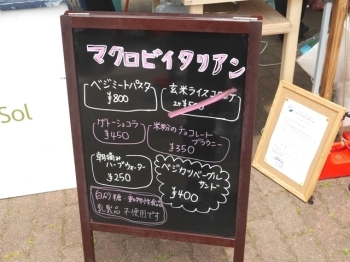 マクロビイタリアン
ベジミートパスタ
¥800
玄米ライスコロッケ
ガトーショコラ
¥450
米粉のチョコレート
ブラウニー
¥350
朝摘み
ハーブウォーター
¥250
ベジカツベーグル
サンド
¥400
白砂糖・動物性食品
乳製品不使用です
Sol